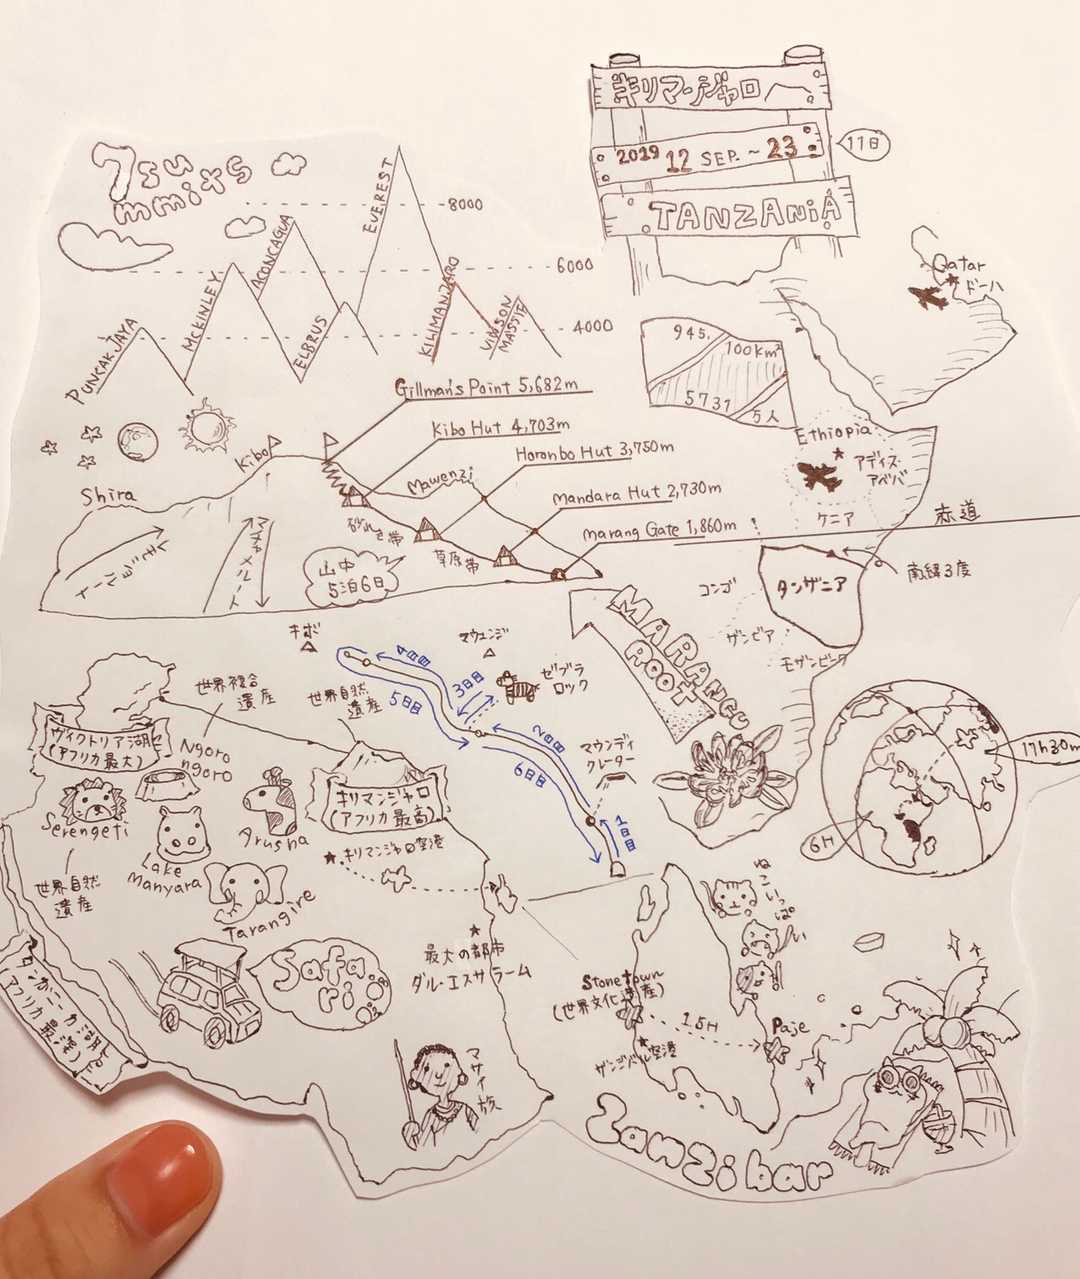 キリマンジャロ
2019 12 SEP. ~ 23
11日
TANZANiA
7su
mmits
8000
6000
4000
PUNCAKJAYA
MCKINLEY
ACONCAGUA
ELBRUS
EVEREST
KILIMANJARO
VINSON
MASSIF
Qatar
ドーハ
945.
100km²
5731
5人
Ethiopia
アディス・
アベバ
ケニア
赤道
コンゴ
タンザニア
南緯3度
ザンビア
モザンビーク
Gillman's Point 5,682m
Kibo Hut 4,703m
Horonbo Hut 3,750m
Mandara Hut 2,730m
marang Gate 1,860m
Kibo
Mawenzi
Shira
砂れき帯
草原帯
山中
5泊6日
マチャメルート
MARANGU
ROOT
キボ
マウェンジ
ゼブラ
ロック
マウンディ
クレーター
1日目
2日目
3日目
4日目
5日目
6日目
17h30m
6H
世界複合
遺産
世界自然
遺産
ヴィクトリア湖
(アフリカ最大)
Ngoro
ngoro
Serengeti
世界自然
遺産
Lake
Manyara
Arusha
Tarangire
キリマンジャロ
(アフリカ最高)
★キリマンジャロ空港
★
最大の都市
ダル・エスサラーム
Safa
ri
タンガニーカ湖
(アフリカ最深)
マサイ族
ねこいっぱい
Stonetown
(世界文化遺産)
1.5H
Paje
ザンジバル空港
Zanzibar